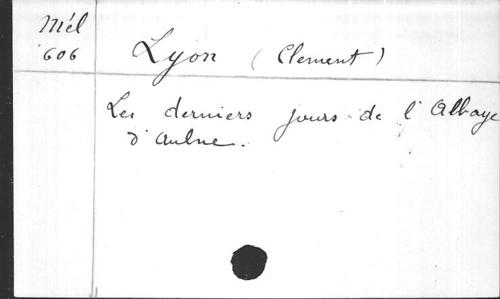 Mél
606
Lyon (Clement)
Les derniers jours de l'Abbaye
d'Aulne.